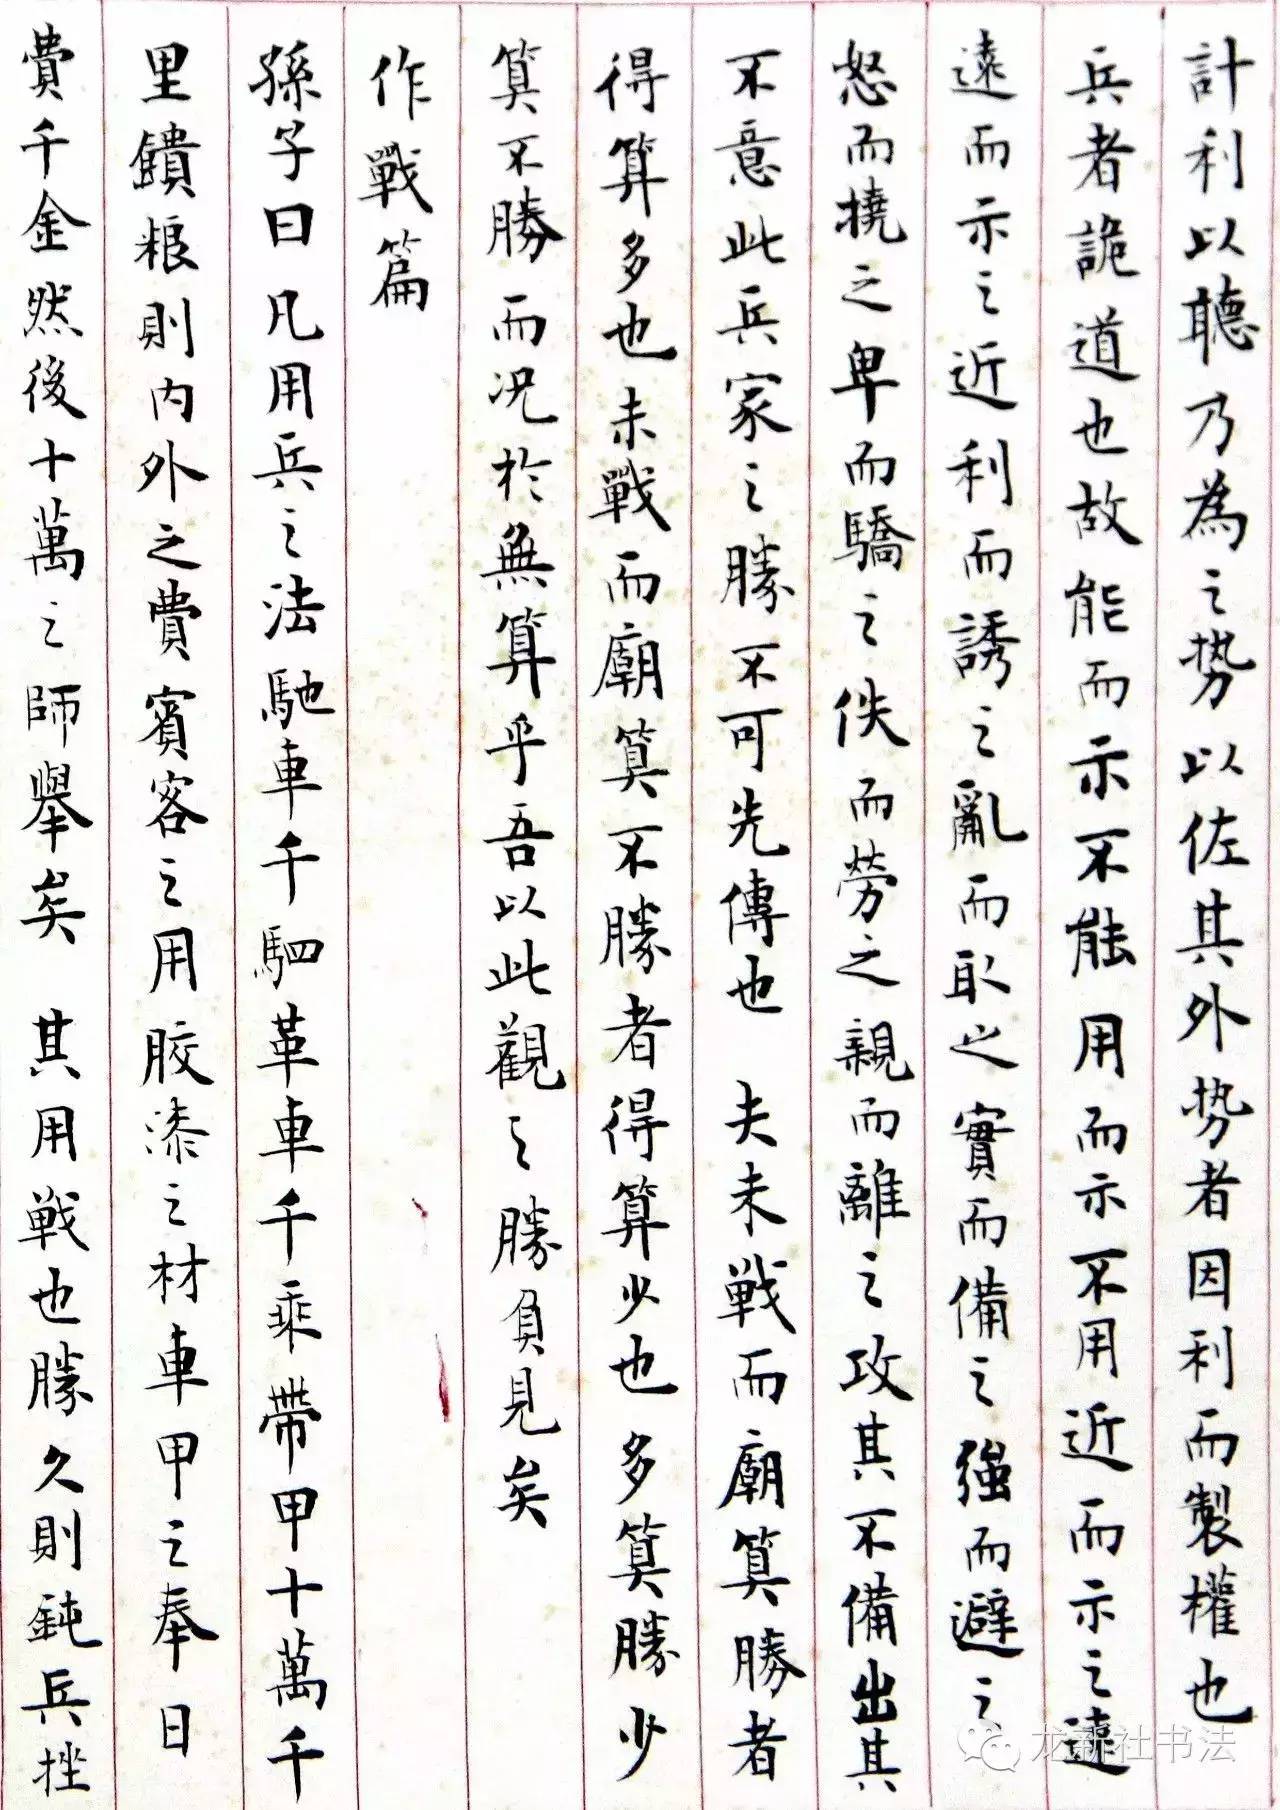 計利以聽乃為之势以佐其外势者因利而製權也
兵者詭道也故能而示不能用而示不用近而示之遠
遠而示之近利而誘之亂而取之實而備之强而避之
怒而撓之卑而驕之佚而勞之親而離之攻其不備出其
不意此兵家之勝不可先傳也 夫未戦而廟算勝者
得算多也未戰而廟算不勝者得算少也多算勝少
算不勝而况於無算乎吾以此觀之勝負見矣
作戰篇
孫子曰凡用兵之法馳車千駟革車千乘帶甲十萬千
里饋粮則内外之費賓客之用胶漆之材車甲之奉日
費千金然後十萬之師舉矣 其用戦也勝久則鈍兵挫
龙新社书法